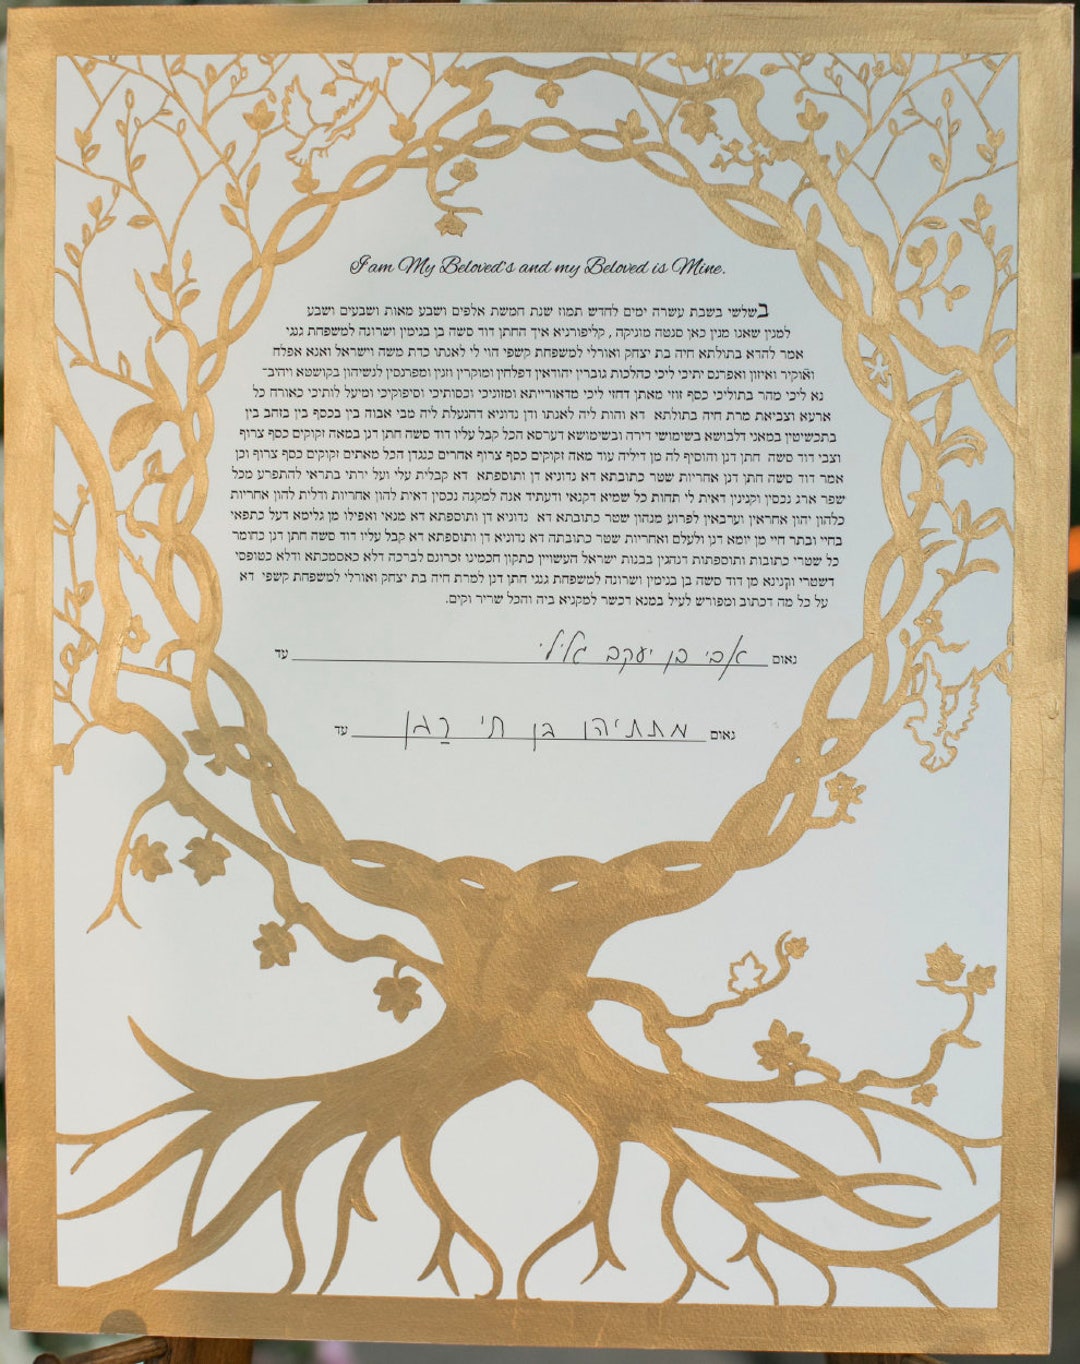 I am My Beloved's and my Beloved is Mine.
בשלישי בשבת עשרה ימים לחדש תמוז שנת חמשת אלפים ושבע מאות ושבעים ושבע
למנין שאנו מנין כאן סנטה מוניקה , קליפורניא איך החתן דוד סשה בן בנימין ושרונה למשפחת גנגי
אמר להדא בתולתא חיה בת יצחק ואורלי למשפחת קשפי הוי לי לאנתו כדת משה וישראל ואנא אפלח
ואוקיר ואיזון ואפרנס יתיכי ליכי כהלכות גוברין יהודאין דפלחין ומוקרין וזנין ומפרנסין לנשיהון בקושטא ויהיב־
נא ליכי מהר בתוליכי כסף זוזי מאתן דחזי ליכי מדאורייתא ומזוניכי וכסותיכי וסיפוקיכי ומיעל לותיכי כאורח כל
ארעא וצביאת מרת חיה בתולתא דא והות ליה לאנתו ודן נדוניא דהנעלת ליה מבי אבוה בין בכסף בין בזהב בין
בתכשיטין במאני דלבושא בשימושי דירה ובשימושא דערסא הכל קבל עליו דוד סשה חתן דנן במאה זקוקים כסף צרוף
וצבי דוד סשה חתן דנן והוסיף לה מן דיליה עוד מאה זקוקים כסף צרוף אחרים כנגדן הכל מאתים זקוקים כסף צרוף וכן
אמר דוד סשה חתן דנן אחריות שטר כתובתא דא נדוניא דן ותוספתא דא קבלית עלי ועל ירתי בתראי להתפרע מכל
שפר ארג נכסין וקנינין דאית לי תחות כל שמיא דקנאי ודעתיד אנה למקנה נכסין דאית להון אחריות ודלית להון אחריות
כלהון יהון אחראין וערבאין לפרוע מנהון שטר כתובתא דא נדוניא דן ותוספתא דא מנאי ואפילו מן גלימא דעל כתפאי
בחיי ובתר חיי מן יומא דנן ולעלם ואחריות שטר כתובתה דא נדוניא דן ותוספתא דא קבל עליו דוד סשה חתן דנן כחומר
כל שטרי כתובות ותוספתות דנהגין בבנות ישראל העשויין כתקון חכמינו זכרונם לברכה דלא כאסמכתא ודלא כטופסי
דשטרי וקנינא מן דוד סשה בן בנימין ושרונה למשפחת גנגי חתן דנן למרת חיה בת יצחק ואורלי למשפחת קשפי דא
על כל מה דכתוב ומפורש לעיל במנא דכשר למקניא ביה והכל שריר וקים.
נאום אבי בן יעקב גלילי עד
נאום מתתיהו בן חי דגן עד